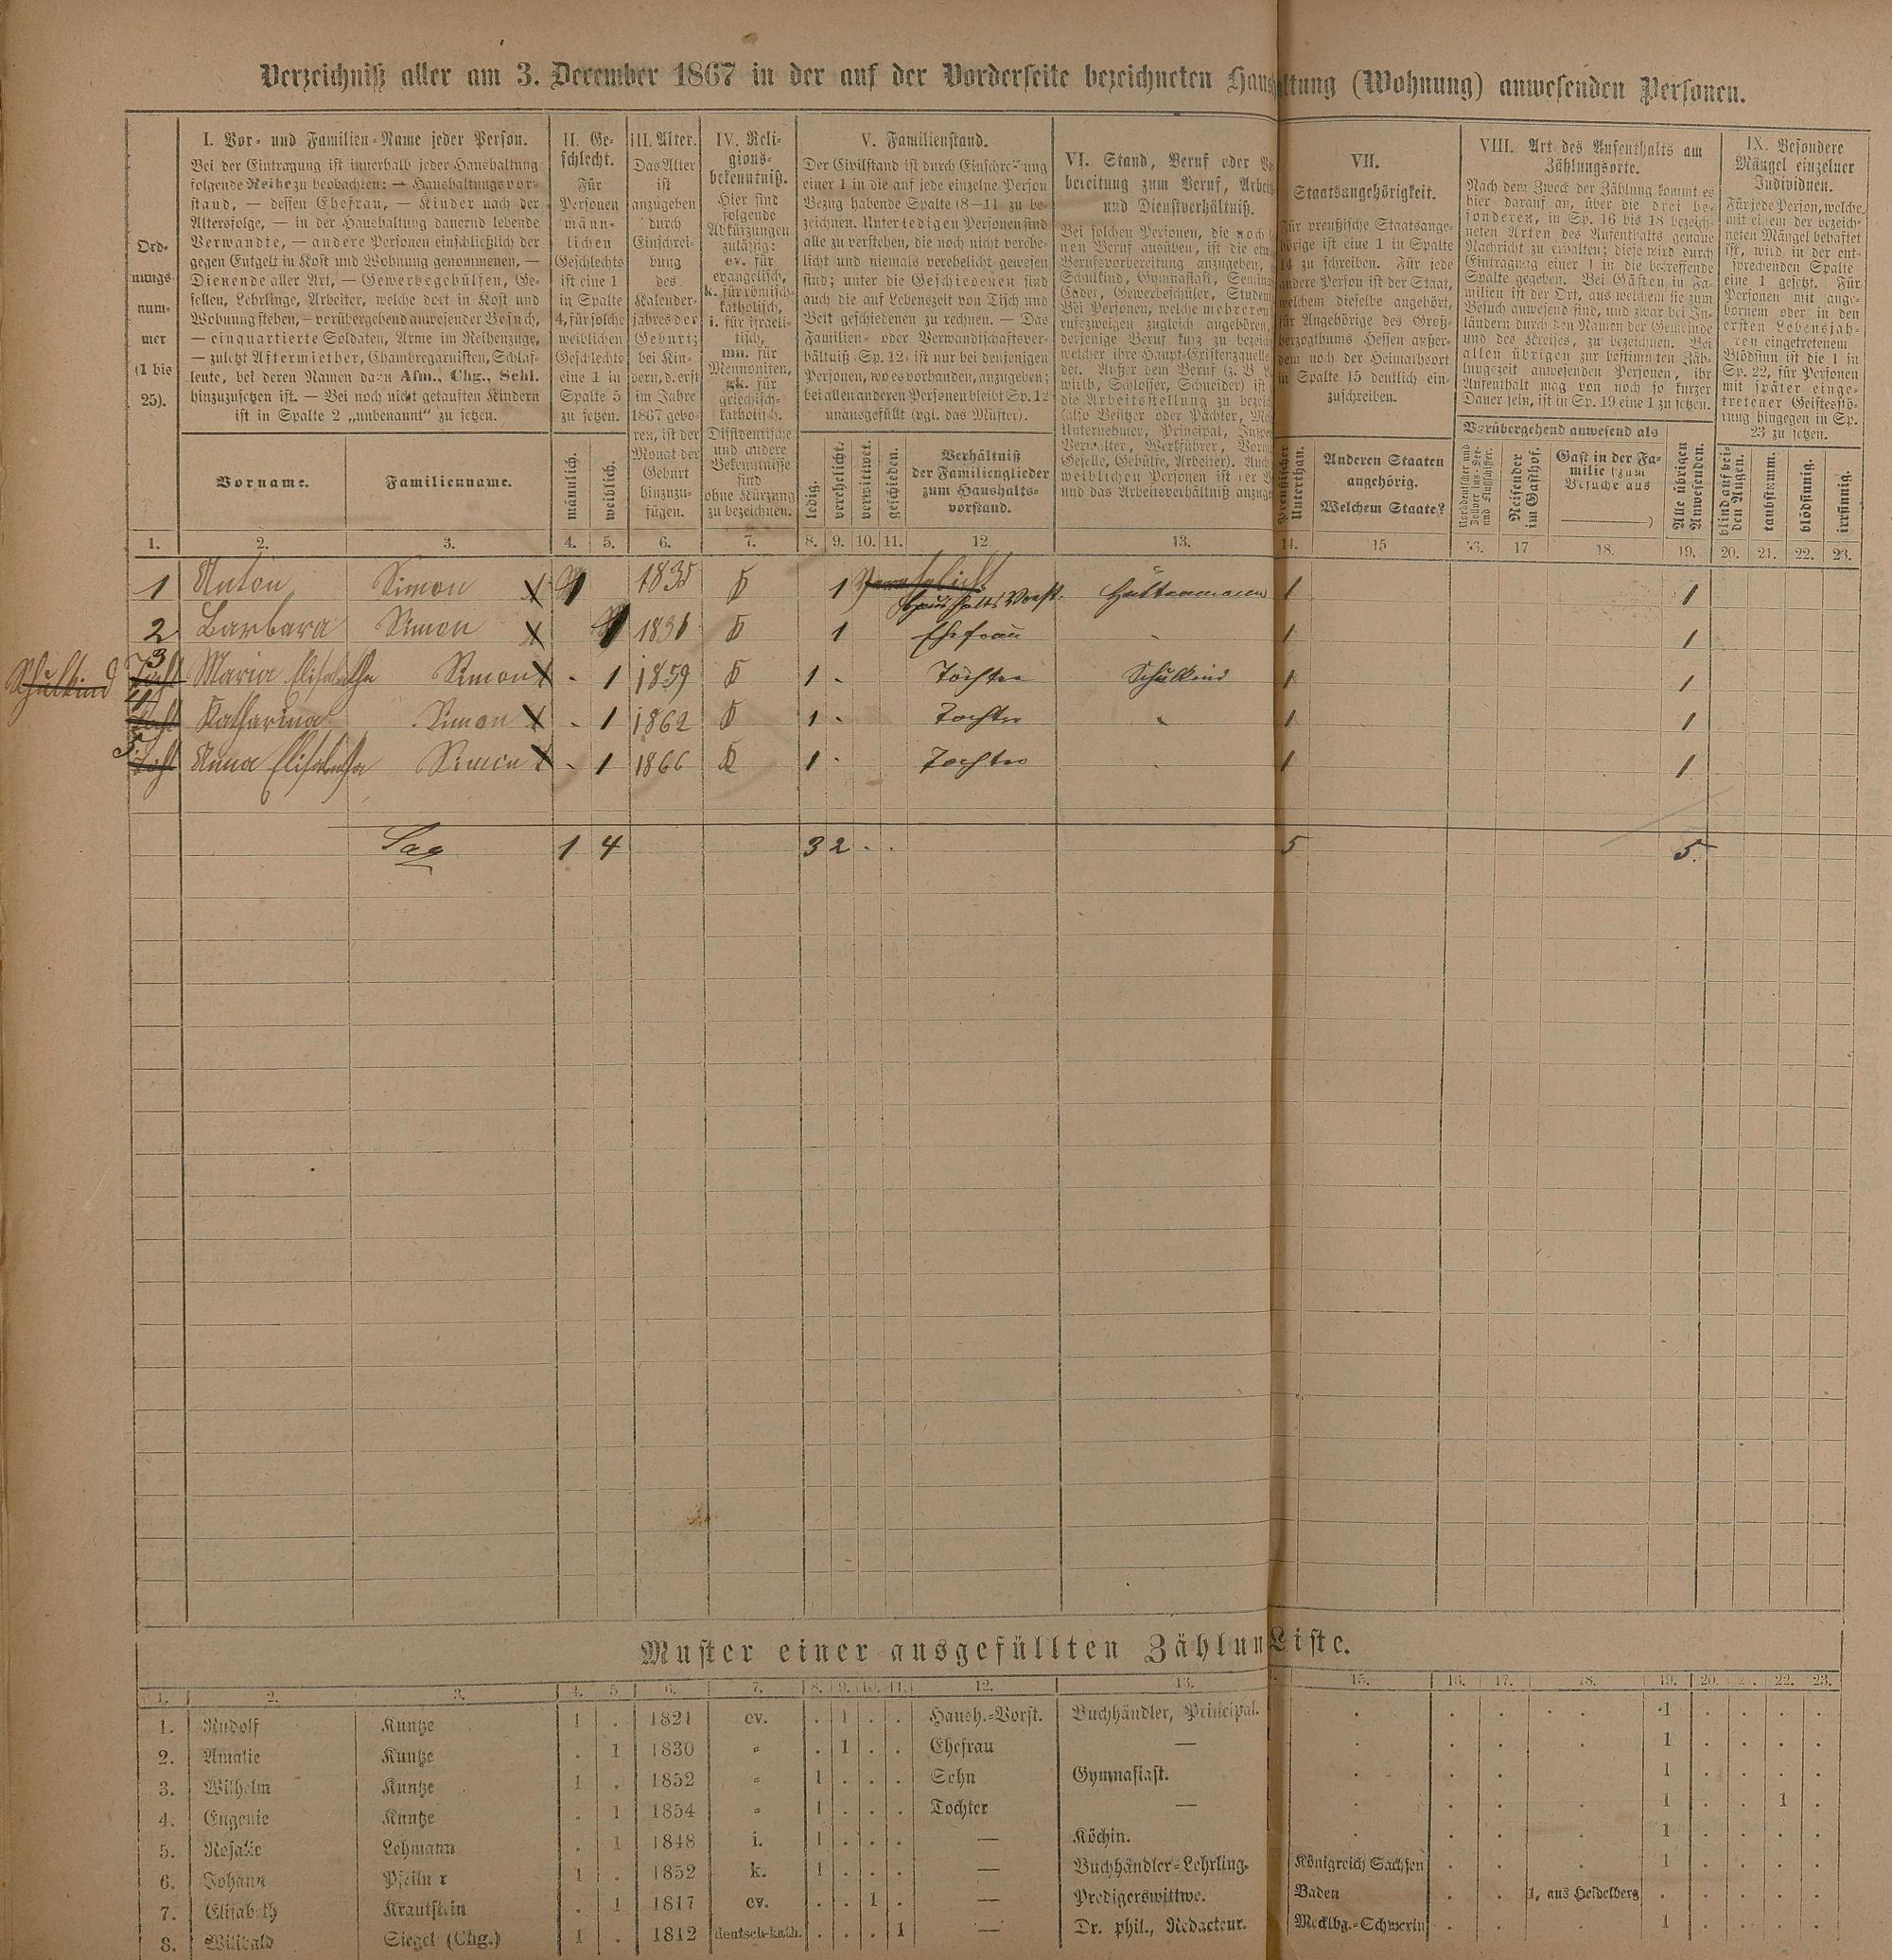 Verzeichniß aller am 3. December 1867 in der auf der Vorderseite bezeichneten Haushaltung (Wohnung) anwesenden Personen.
Ord-
nungs-
num-
mer
(1 bis
25).
I. Vor- und Familien-Name jeder Person.
Bei der Eintragung ist innerhalb jeder Haushaltung
folgende Reihe zu beobachten: — Haushaltungsvor-
stand, — dessen Ehefrau, — Kinder nach der
Altersfolge, — in der Haushaltung dauernd lebende
Verwandte, — andere Personen einschließlich der
gegen Entgelt in Kost und Wohnung genommenen, —
Dienende aller Art, — Gewerbegehülfen, Ge-
sellen, Lehrlinge, Arbeiter, welche dort in Kost und
Wohnung stehen, — vorübergehend anwesender Besuch,
— einquartierte Soldaten, Arme im Reihenzuge,
— zuletzt Aftermiether, Chambregarnisten, Schlaf-
leute, bei deren Namen dann Afm., Chg., Schl.
hinzuzusetzen ist. — Bei noch nicht getauften Kindern
ist in Spalte 2 „unbenannt“ zu setzen.
Vorname.
Familienname.
II. Ge-
schlecht.
Für
Personen
männ-
lichen
Geschlechts
ist eine 1
in Spalte
4, für solche
weiblichen
Geschlechts
eine 1 in
Spalte 5
zu setzen.
männlich.
weiblich.
III. Alter.
Das Alter
ist
anzugeben
durch
Einschrei-
bung
des
Kalender-
jahres der
Geburt;
bei Kin-
dern, d. erst
im Jahre
1867 gebo-
ren, ist der
Monat der
Geburt
hinzuzu-
fügen.
IV. Reli-
gions-
bekenntniß.
Hier sind
folgende
Abkürzungen
zulässig:
ev. für
evangelisch,
k. für römisch-
katholisch,
i. für israeli-
tisch,
mn. für
Mennoniten,
gk. für
griechisch-
katholisch.
Dissidentische
und andere
Bekenntnisse
sind
ohne Kürzung
zu bezeichnen.
V. Familienstand.
Der Civilstand ist durch Einschreibung
einer 1 in die auf jede einzelne Person
Bezug habende Spalte (8–11) zu be-
zeichnen. Unter ledigen Personen sind
alle zu verstehen, die noch nicht verehe-
licht und niemals verehelicht gewesen
sind; unter die Geschiedenen sind
auch die auf Lebenszeit von Tisch und
Bett geschiedenen zu rechnen. — Das
Familien- oder Verwandtschaftsver-
hältniß (Sp. 12) ist nur bei denjenigen
Personen, wo es vorhanden, anzugeben;
bei allen anderen Personen bleibt Sp. 12
unausgefüllt (vgl. das Muster).
ledig.
verehelicht.
verwittwet.
geschieden.
Verhältniß
der Familienglieder
zum Haushalts-
vorstand.
VI. Stand, Beruf oder
bereitung zum Beruf,
und Dienstverhältniß.
VII.
Staatsangehörigkeit.
Für preußische Staatsange-
hörige ist eine 1 in Spalte
14 zu schreiben. Für jede
andere Person ist der Staat,
welchem dieselbe angehört,
für Angehörige des Groß-
herzogthums Hessen außer-
dem noch der Heimathsort
in Spalte 15 deutlich ein-
zuschreiben.
Preußischer
Unterthan.
Anderen Staaten
angehörig.
Welchem Staate?
VIII. Art des Aufenthalts am
Zählungsorte.
Nach dem Zweck der Zählung kommt es
hier darauf an, über die drei be-
sonderen, in Sp. 16 bis 18 bezeich-
neten Arten des Aufenthalts genaue
Nachricht zu erhalten; diese wird durch
Eintragung einer 1 in die betreffende
Spalte gegeben. Bei Gästen in Fa-
milien ist der Ort, aus welchem sie zum
Besuch anwesend sind, und zwar bei In-
ländern durch den Namen der Gemeinde
und des Kreises, zu bezeichnen. Bei
allen übrigen zur bestimmten Zäh-
lungszeit anwesenden Personen, ihr
Aufenthalt mag von noch so kurzer
Dauer sein, ist in Sp. 19 eine 1 zu setzen.
Vorübergehend anwesend als
Reisender
im Gasthof.
Gast in der Fa-
milie (zum
Besuche aus
)
Alle übrigen
Anwesenden.
IX. Besondere
Mängel einzelner
Individuen.
Für jede Person, welche
mit einem der bezeich-
neten Mängel behaftet
ist, wird in der ent-
sprechenden Spalte
eine 1 gesetzt. Für
Personen mit ange-
bornem oder in den
ersten Lebensjah-
ren eingetretenem
Blödsinn ist die 1 in
Sp. 22, für Personen
mit später einge-
tretener Geistesstö-
rung hingegen in Sp.
23 zu setzen.
blind auf bei-
den Augen.
taubstumm.
blödsinnig.
irrsinnig.
1. 2. 3. 4. 5. 6. 7. 8. 9. 10. 11. 12. 13. 14. 15 16. 17 18. 19. 20. 21. 22. 23.
1 Anton Simon 1 1835 k 1 Haushalts Vorst. Hüttenmann 1 1
2 Barbara Simon 1 k 1 Ehefrau 1 1
Schulkind 3 Maria Elisabetha Simon - 1 1859 k 1 - Tochter Schulkind 1 1
4 Katharina Simon - 1 1862 k 1 - Tochter 1 1
5 Anna Elisabetha Simon - 1 1866 k 1 Tochter 1 1
1 4 3 2 5 5.
Muster einer ausgefüllten Zählungsliste.
1. 2. 3. 4. 5 6. 7. 8. 9. 10. 11. 12. 13. 15. 16. 17. 18. 19. 20. 22. 23.
1. Rudolf Kuntze 1 . 1821 ev. . 1 . . Haush.-Vorst. Buchhändler, Principal. 1
2. Amalie Kuntze . 1 1830 " . 1 . . Ehefrau — 1
3. Wilhelm Kuntze 1 . 1852 " 1 . . . Sohn Gymnasiast. 1
4. Eugenie Kuntze . 1 1854 " 1 . . . Tochter — 1 1
5. Rosalie Lehmann . 1 1848 i. 1 . . . — Köchin. 1
6. Johann 1 . 1852 k. 1 . . . — Buchhändler-Lehrling. Königreich Sachsen 1
7. Elisabeth Krautstein . 1 1817 ev. . . 1 . — Predigerswittwe. Baden 1, aus Heidelberg
8. Willibald Siegel (Chg.) 1 . 1812 deutsch-kath. . . . 1 — Dr. phil., Redacteur. Mecklbg.-Schwerin 1